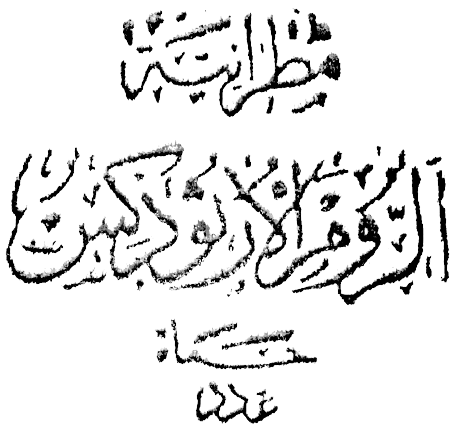 مطرانية
الروم الأرثوذكس
حماة